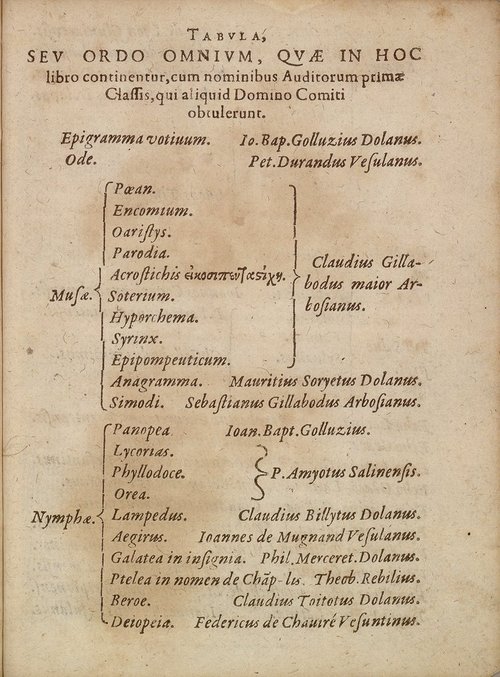 TABVLA,
SEV ORDO OMNIVM, QVÆ IN HOC
libro continentur, cum nominibus Auditorum primæ
Classis, qui aliquid Domino Comiti
obtulerunt.
Epigramma votiuum. Io. Bap. Golluzius Dolanus.
Ode. Pet. Durandus Vesulanus.
Musæ.
Pæan.
Encomium.
Oaristys.
Parodia.
Acrostichis
Soterium.
Hyporchema.
Syrinx.
Epipompeuticum.
Claudius Gilla-
bodus maior Ar-
bosianus.
Anagramma. Mauritius Soryetus Dolanus.
Simodi. Sebastianus Gillabodus Arbosianus.
Nymphæ.
Panopea Ioan. Bapt. Golluzius.
Lycorias.
Phyllodoce.
Orea.
P. Amyotus Salinensis.
Lampedus. Claudius Billytus Dolanus.
Aegirus. Ioannes de Mugnand Vesulanus.
Galatea in insignia. Phil. Merceret. Dolanus.
Ptelea in nomen de Chãp-lis. Theob. Rebilius.
Beroe. Claudius Toitotus Dolanus.
Deiopeia. Federicus de Chauiré Vesuntinus.